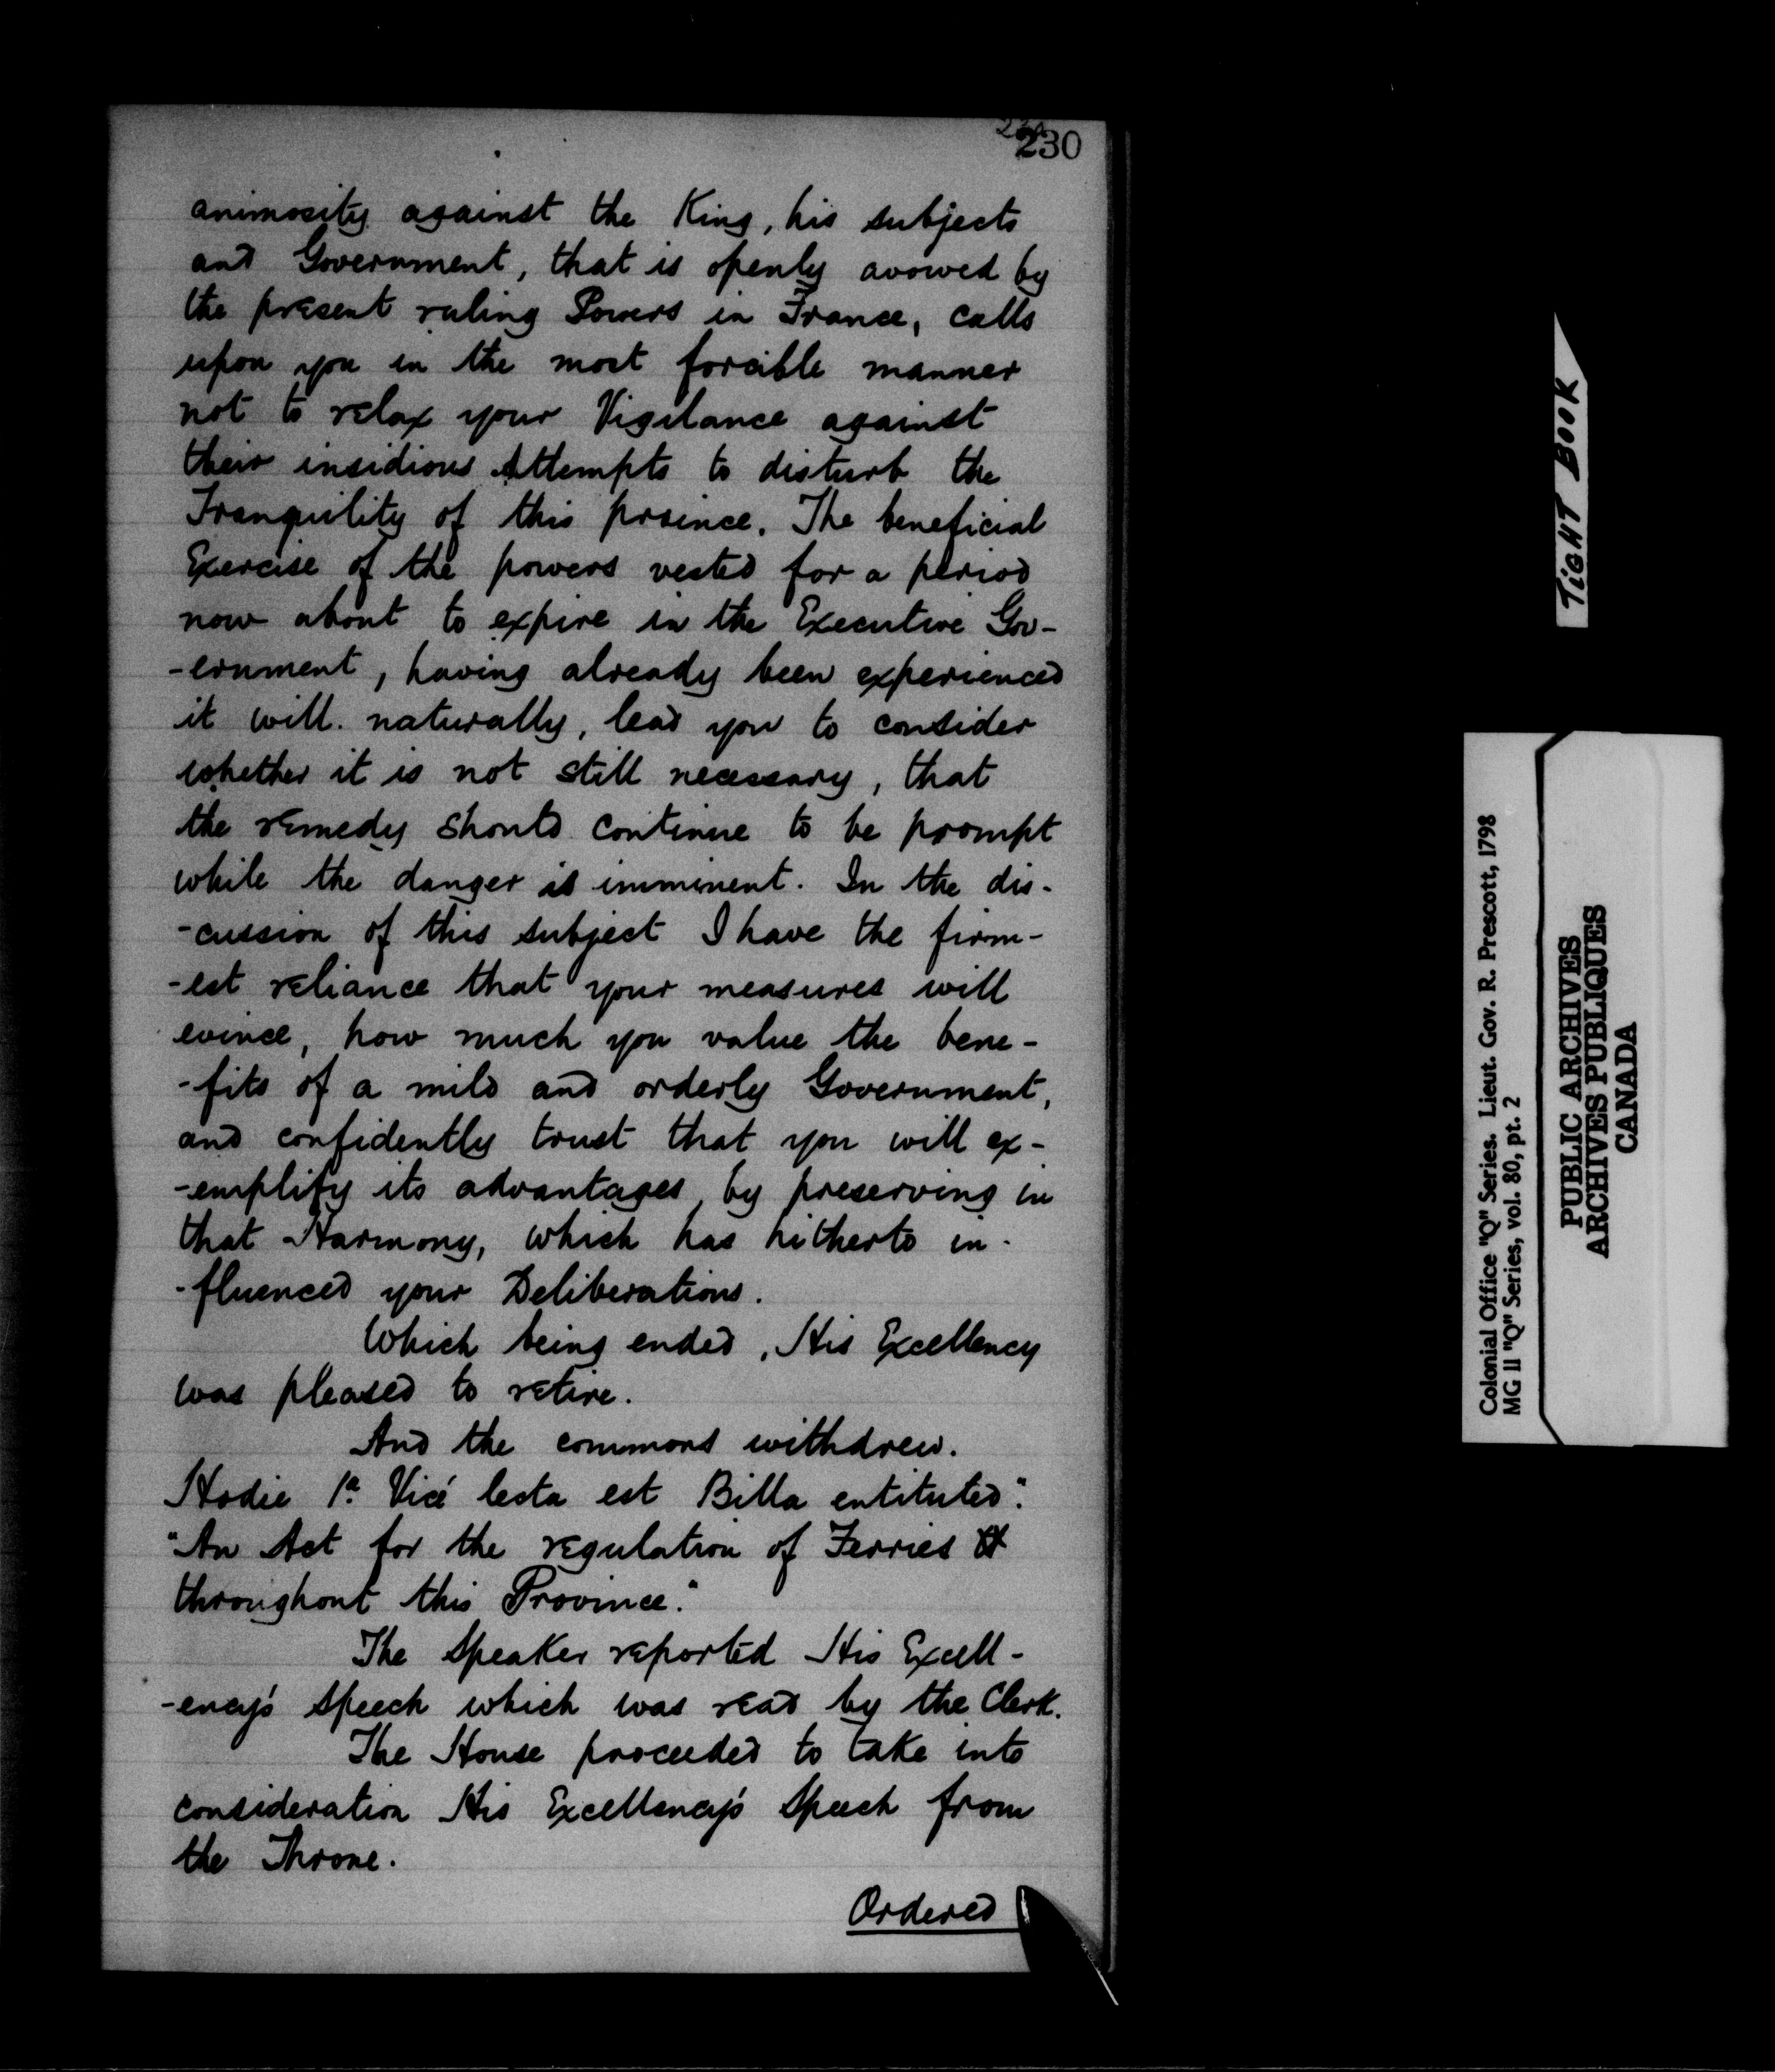 230
animosity against the King, his subjects
and Government, that is openly avowed by
the present ruling Powers in France, calls
upon you in the most forcible manner
not to relax your Vigilance against
their insidious Attempts to disturb the
Tranquility of this province. The beneficial
Exercise of the powers vested for a period
now about to expire in the Executive Gov-
-ernment, having already been experienced
it will naturally, lead you to consider
whether it is not still necessary, that
the remedy should continue to be prompt
while the danger is imminent. In the dis-
-cussion of this subject I have the firm-
-est reliance that your measures will
evince, how much you value the bene-
-fits of a mild and orderly Government,
and confidently trust that you will ex-
-emplify its advantages, by preserving in
that Harmony, which has hitherto in-
-fluenced your Deliberations.
Which being ended, His Excellency
was pleased to retire.
And the commons withdrew.
Hodie 1a Vicé lecta est Billa entituted".
"An Act for the regulation of Ferries &
throughout this Province."
The Speaker reported His Excell-
-ency's Speech which was read by the Clerk.
The House proceeded to take into
consideration His Excellency's Speech from
the Throne.
Ordered
TIGHT BOOK
Colonial Office "Q" Series. Lieut. Gov. R. Prescott, 1798
MG 11 "Q" Series, vol. 80, pt. 2
PUBLIC ARCHIVES
ARCHIVES PUBLIQUES
CANADA